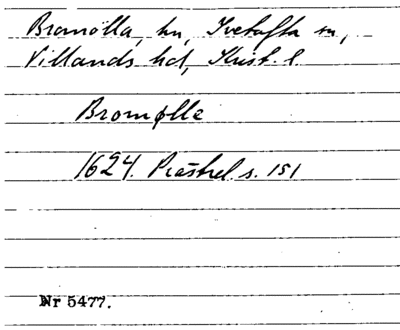 Bromölla, hn, Ivetofta sn,
Villands hd, Krist. l.
Bromølle
1624. Prästrel. s. 151
Nr 5477.